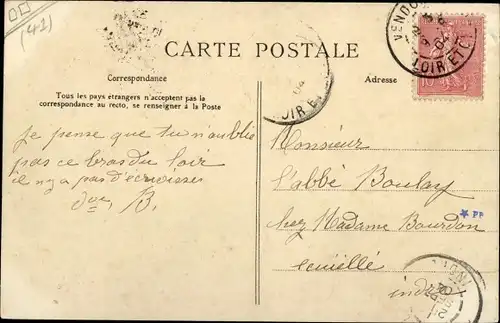 (41)
CARTE POSTALE
Correspondance
Adresse
Tous les pays étrangers n'acceptent pas la
correspondance au recto, se renseigner à la Poste
je pense que tu n'oublie
pas ce bras du loir
il n'y a pas d'écrevisses
B.
Monsieur
l'abbé Boulay
chez Madame Bourdon
Ecueillé
indre
VENDO
04
LOIR ET C
10
OIR E
04
PP